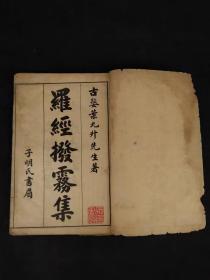 古婺葉九升先生著
羅經撥霧集
子明氏書屑